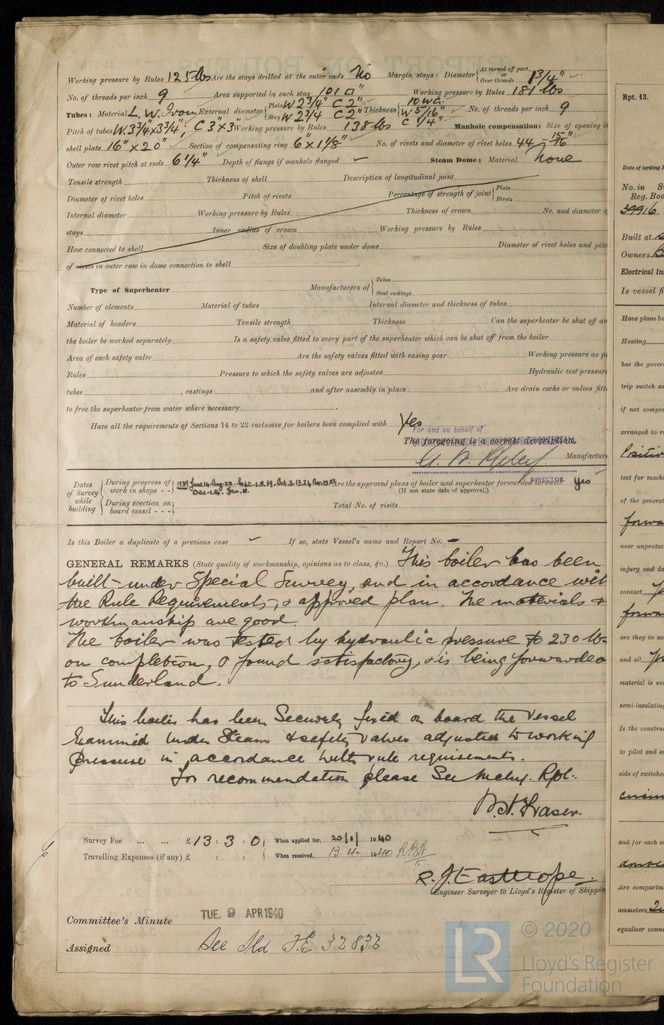 Working pressure by Rules 125 lbs Are the stays drilled at the outer ends No Margin stays: Diameter { At turned off part, or Over threads 1 3/4"
No. of threads per inch 9 Area supported by each stay 101 □" Working pressure by Rules 181 lbs
Tubes: Material L.W. Iron External diameter { Plain W 2 3/4" C 2" Stay W 2 3/4 C 2" Thickness { 10 WG. W 5/16" C 1/4" No. of threads per inch 9
Pitch of tubes W. 3 3/4 x 3 3/4"; C 3" x 3" Working pressure by Rules 138 lbs Manhole compensation: Size of opening i
shell plate 16" x 20" Section of compensating ring 6" x 1 1/8" No. of rivets and diameter of rivet holes 44 - 15/16"
Outer row rivet pitch at ends 6 1/4" Depth of flange if manhole flanged – Steam Dome: Material None
Tensile strength Thickness of shell Description of longitudinal joint
Diameter of rivet holes Pitch of rivets Percentage of strength of joint { Plate Rivets
Internal diameter Working pressure by Rules Thickness of crown No. and diameter o
stays Inner radius of crown Working pressure by Rules
How connected to shell Size of doubling plate under dome Diameter of rivet holes and pitc
of rivets in outer row in dome connection to shell
Type of Superheater Manufacturers of { Tubes Steel castings
Number of elements Material of tubes Internal diameter and thickness of tubes
Material of headers Tensile strength Thickness Can the superheater be shut off an
the boiler be worked separately Is a safety valve fitted to every part of the superheater which can be shut off from the boiler
Area of each safety valve Are the safety valves fitted with easing gear Working pressure as p
Rules Pressure to which the safety valves are adjusted Hydraulic test pressur
tubes , castings and after assembly in place Are drain cocks or valves fitt
to free the superheater from water where necessary
Have all the requirements of Sections 14 to 22 inclusive for boilers been complied with Yes
For and on behalf of
The foregoing is a correct description,
Manufactur
DIRECTOR
Dates of Survey while building { During progress of work in shops - - Are the approved plans of boiler and superheater forwarded Yes
(If not state date of approval.)
During erection on board vessel - - - Total No. of visits
Is this Boiler a duplicate of a previous case – If so, state Vessel's name and Report No. –
GENERAL REMARKS (State quality of workmanship, opinions as to class, &c.) This boiler has been
built under Special Survey, and in accordance with
the Rule Requirements, & approved plan. The materials &
workmanship are good.
The boiler was tested by hydraulic pressure to 230 lbs
on completion, & found satisfactory, & is being forwarded
to Sunderland.
This boiler has been Securely fixed on board the Vessel
Examined Under Steam & safety valves adjusted to working
pressure in accordance with rule requirements.
For recommendation please See Mchy. Rpt.
Survey Fee ... ... £ 13 : 3 : 0 When applied for, 20/1/1940
Travelling Expenses (if any) £ : : When received, 13.4.1940
R. J. Easthope.
Engineer Surveyor to Lloyd's Register of Shippin
Committee's Minute TUE. 9 APR 1940
Assigned See Sld F.E 32832
Rpt. 13.
Date of writing
No. in S
Reg. Boo
39916
Built at
Owners
Electrical In
Is vessel f
Have plans be
Heating
has the gover
trip switch a
if not compo
arranged to r
Positiv
test for machin
of the generat
forwa
near unprotect
injury and da
contact
forwa
are they in ac
and oil
material is u
semi-insulating
Is the construc
to pilot and e
side of switche
and for each o
Are compart
ammeters
equaliser conne
LR © 2020
Lloyd's Register
Foundation